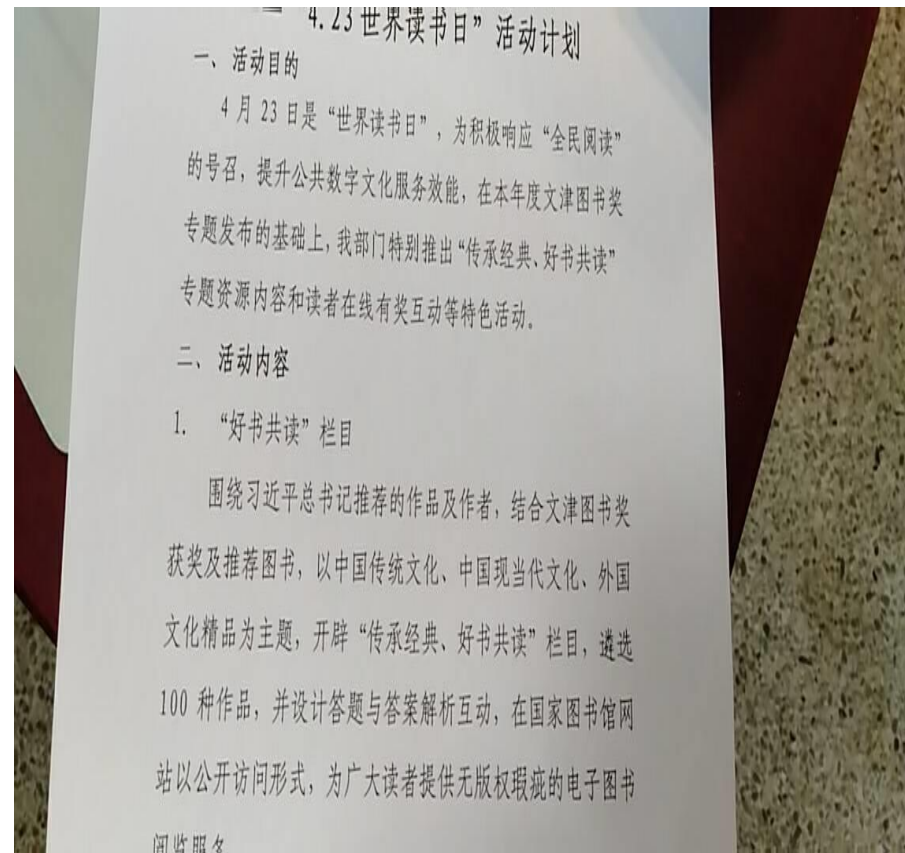 4.23世界读书日”活动计划
一、活动目的
4 月 23 日是“世界读书日”，为积极响应“全民阅读”
的号召，提升公共数字文化服务效能，在本年度文津图书奖
专题发布的基础上，我部门特别推出“传承经典、好书共读”
专题资源内容和读者在线有奖互动等特色活动。
二、活动内容
1. “好书共读”栏目
围绕习近平总书记推荐的作品及作者，结合文津图书奖
获奖及推荐图书，以中国传统文化、中国现当代文化、外国
文化精品为主题，开辟“传承经典、好书共读”栏目，遴选
100 种作品，并设计答题与答案解析互动，在国家图书馆网
站以公开访问形式，为广大读者提供无版权瑕疵的电子图书
阅览服务